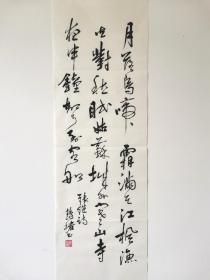 月落烏啼霜滿天江楓漁
火對愁眠姑蘇城外寒山寺
夜半鐘聲到客船
張繼詩